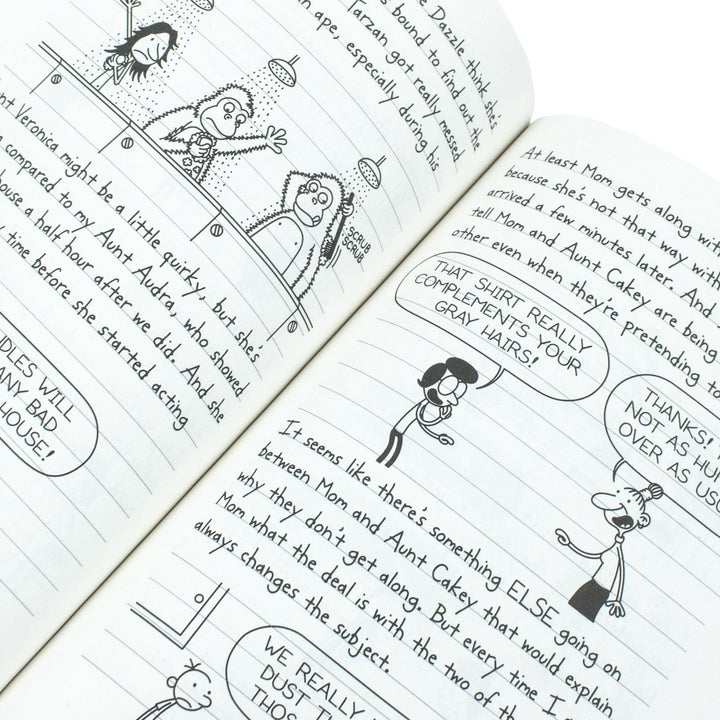 e Dazzle think she's
s bound to find out the
Tarzan got really messed
n ape, especially during his
SCRUB
SCRUB
nt Veronica might be a little quirky, but she's
compared to my Aunt Audra, who showed
house a half hour after we did. And she
time before she started acting
DLES WILL
ANY BAD
HOUSE!
At least Mom gets along with
because she's not that way with
arrived a few minutes later. And
tell Mom and Aunt Cakey are being
other even when they're pretending to
THAT SHIRT REALLY
COMPLEMENTS YOUR
GRAY HAIRS!
THANKS!
NOT AS HU
OVER AS USU
It seems like there's something ELSE going on
between Mom and Aunt Cakey that would explain
why they don't get along. But every time I
Mom what the deal is with the two of th
always changes the subject.
WE REALLY
DUST TH
THOS